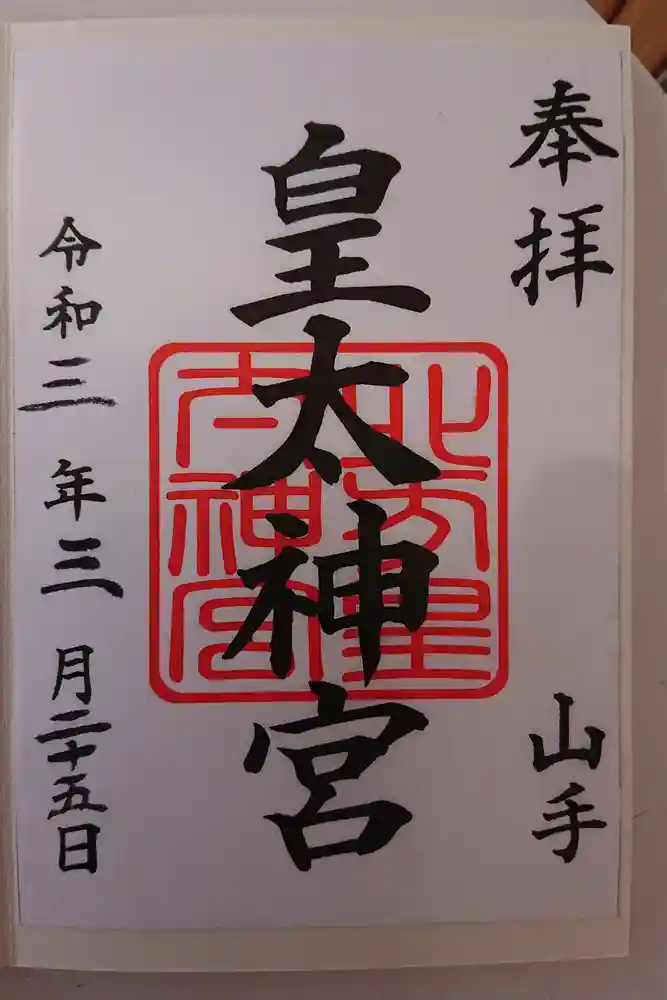 奉拝
山手
皇太神宮
北方皇
大神宮
令和三年三月二十五日